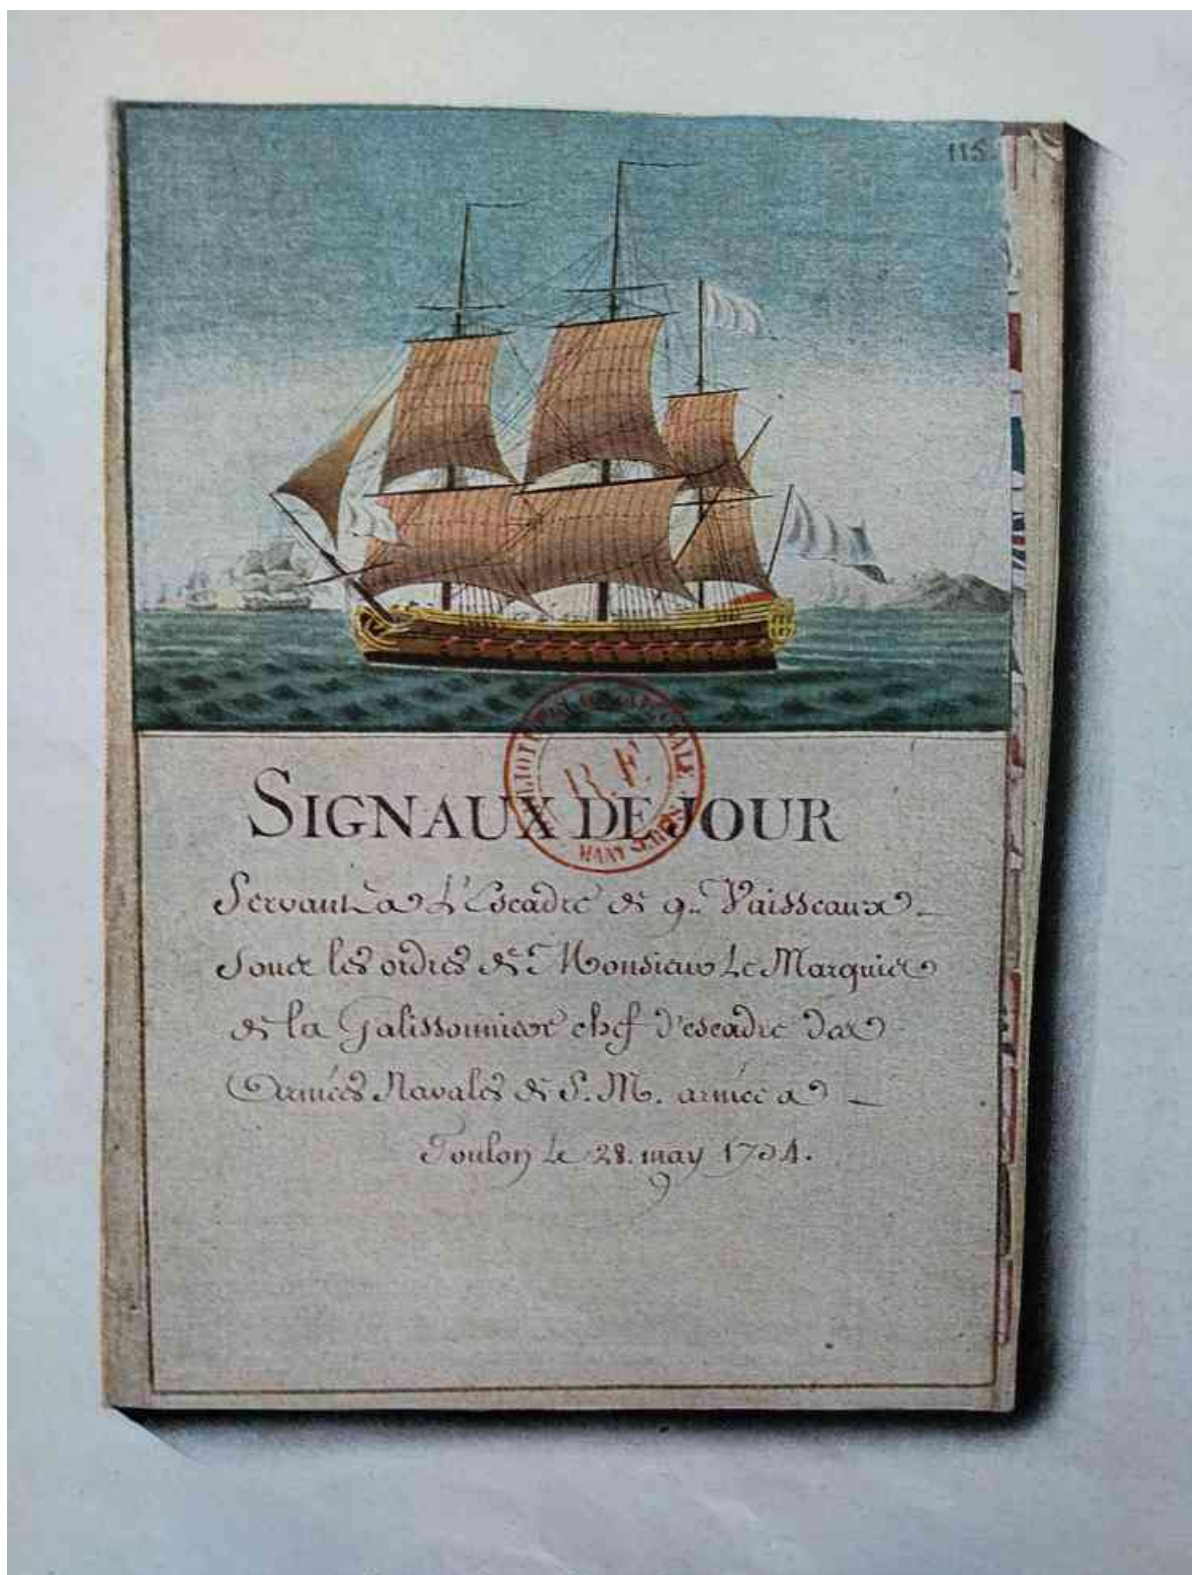 115.
SIGNAUX DE JOUR
BIBLIOTHEQUE NATIONALE
R.F.
MANUSCRITS
Servant a L'Escadre de 9. Vaisseaux
Sous les ordres de Monsieur Le Marquis
de la Galissonniere chef d'escadre des
Armées Navales de S. M. armée a
Toulon Le 28. may 1754.